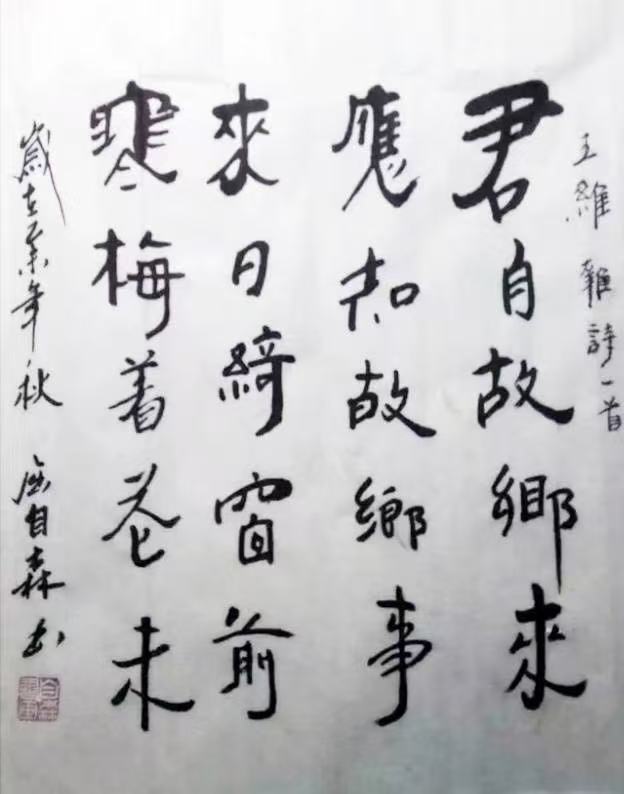 王維雜詩一首
君自故鄉來
應知故鄉事
來日綺窗前
寒梅着花未
歲在年秋 屈自森书